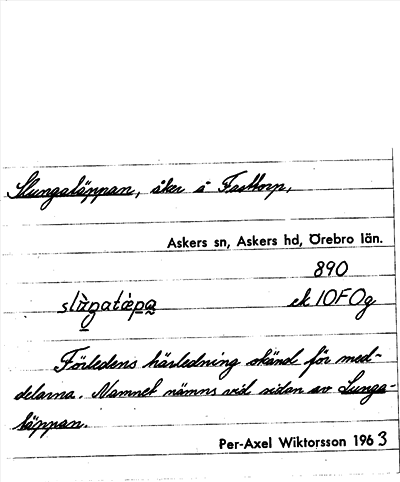 Slungatäppan, åker å Fasttorp,
Askers sn, Askers hd, Örebro län.
890
ek 10F0g
Förledens härledning okänd för med-
delarna. Namnet nämns vid sidan av Lunga-
täppan.
Per-Axel Wiktorsson 1963